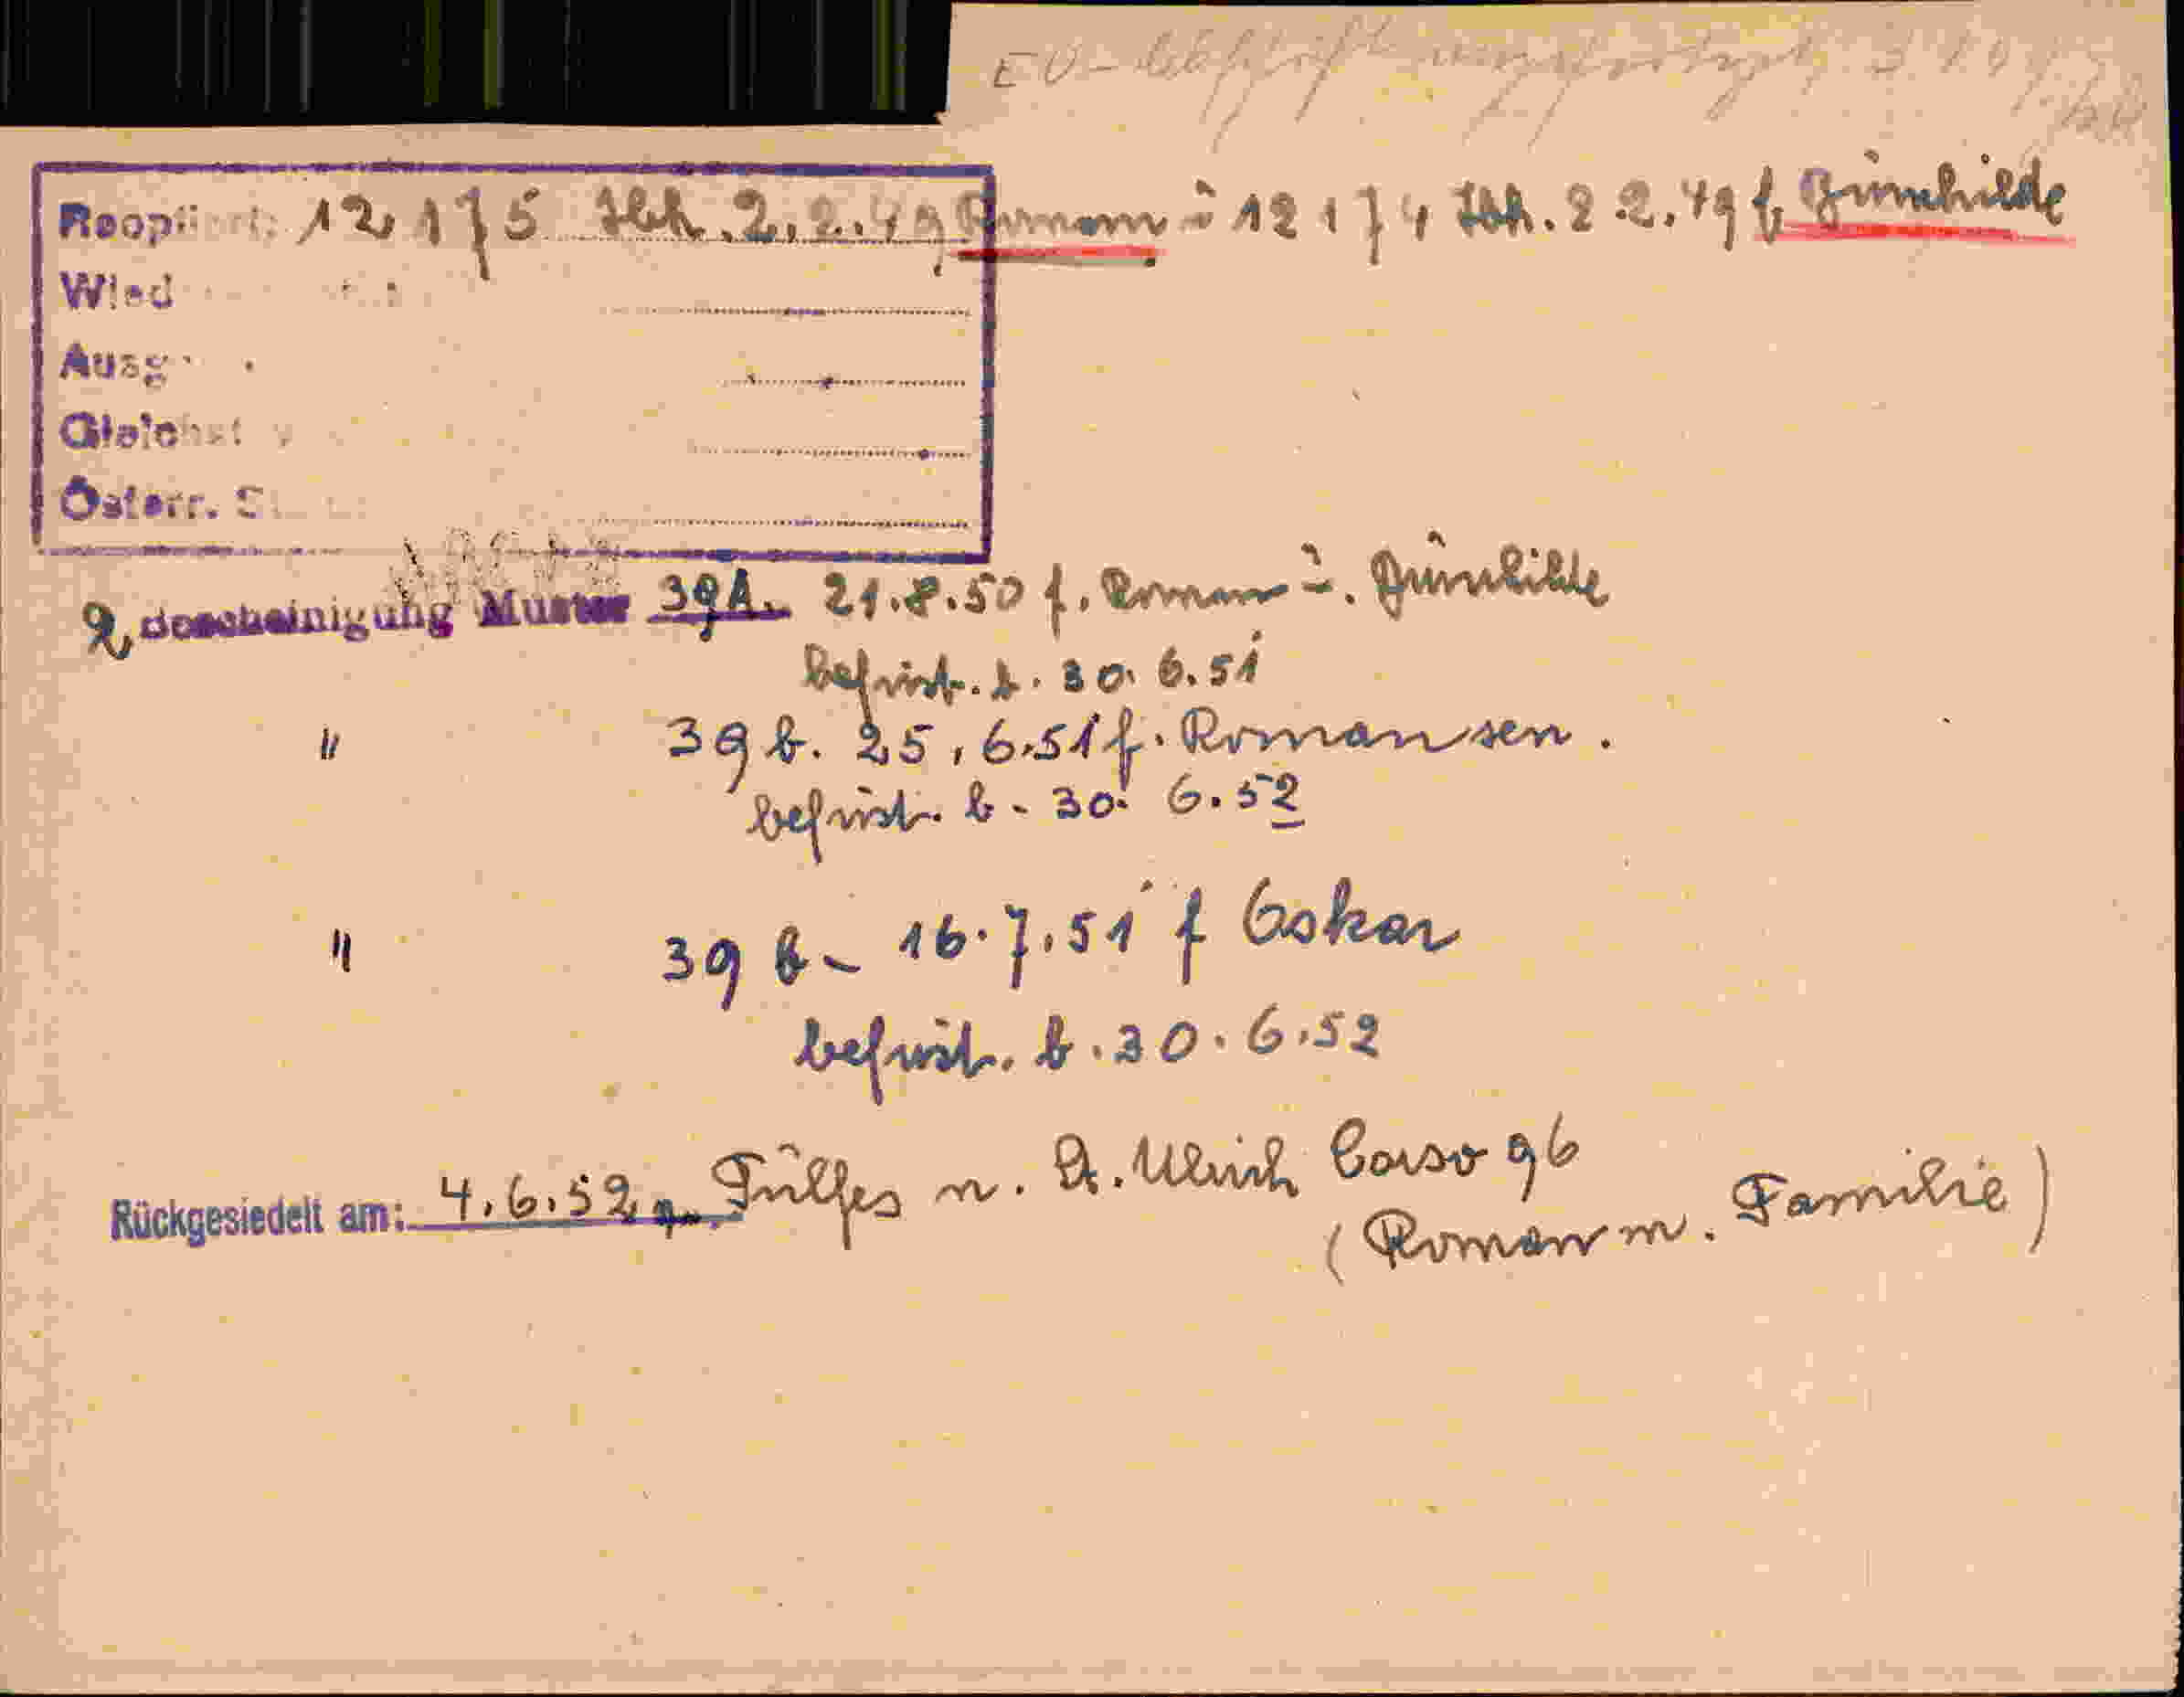 EV-
Reoptiert: 12175 Ibk. 2.2.49 Roman u 12174 Ibk. 2.2.49 f.
Wied
Ausg
Gleichst
Österr. St
2 Bescheinigung Muster 39A. 21.8.50 f. Roman u.
befrist. b. 30.6.51
" 39 b. 25.6.51 f. Roman sen.
befrist. b. 30.6.52
" 39 b. 16.7.51 f Oskar
befrist. b. 30.6.52
Rückgesiedelt am: 4.6.52 Tulfes n. St. Ulrich Corso 96
(Roman m. Familie)